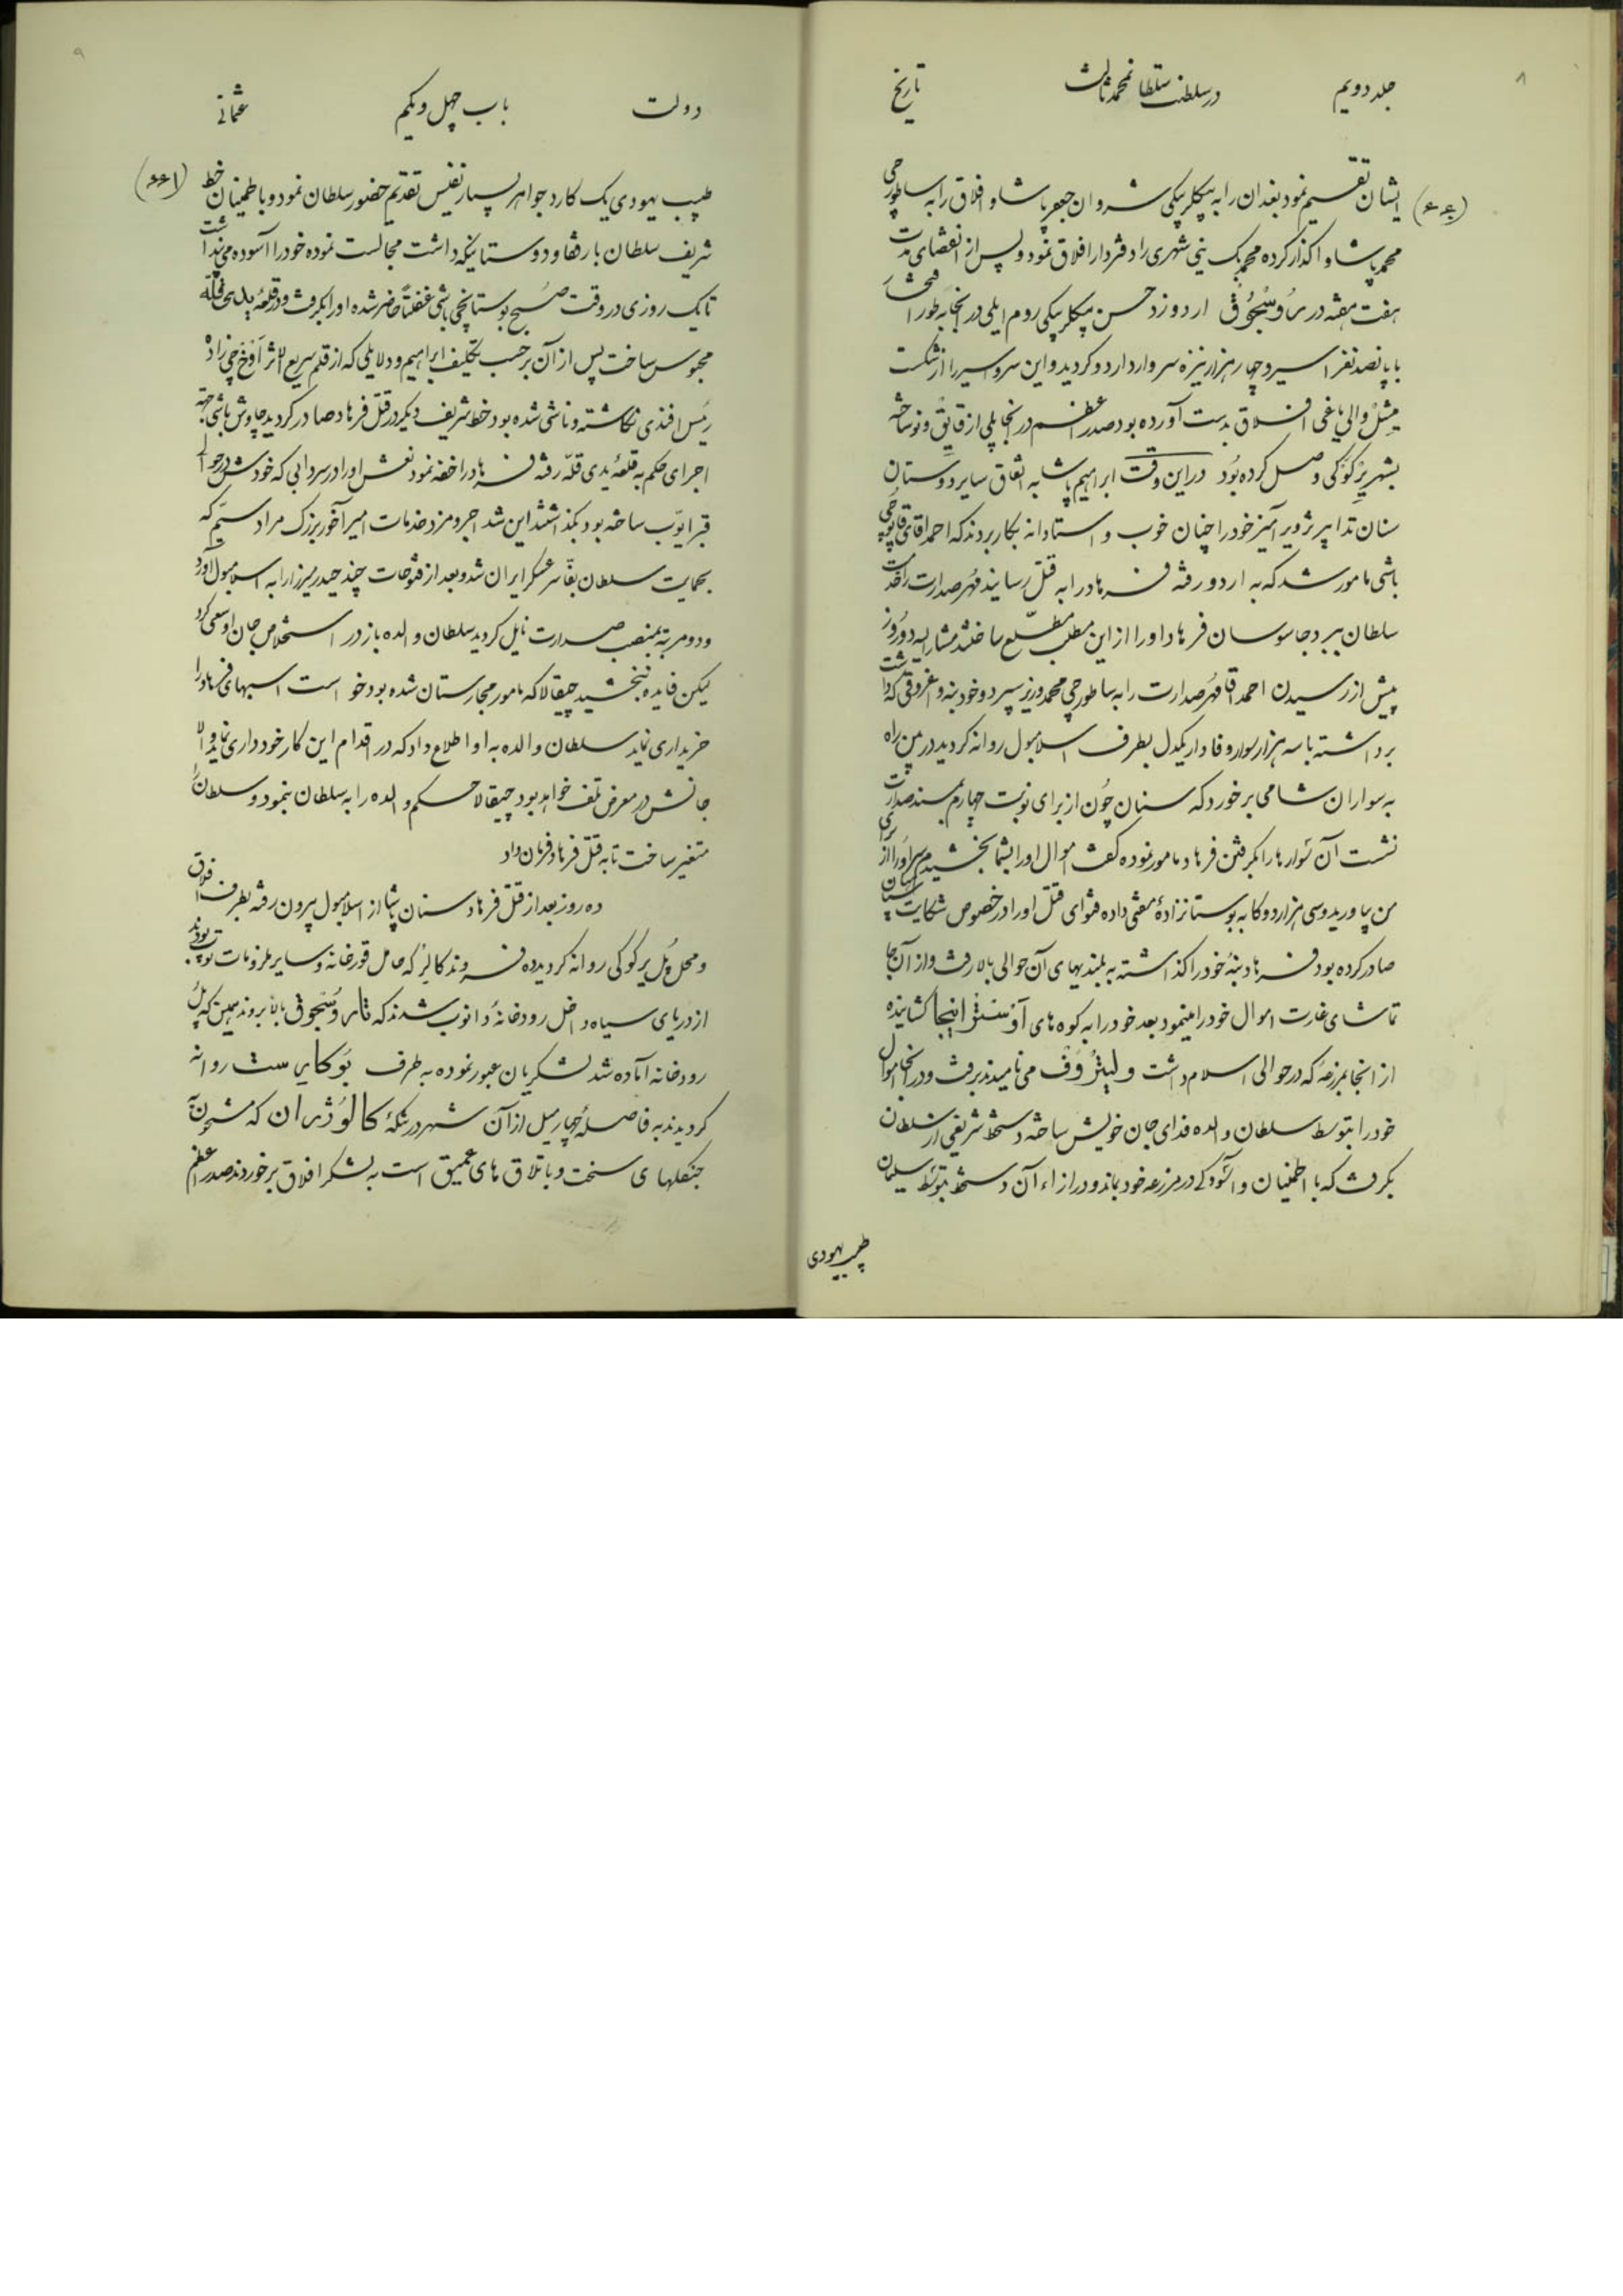 ۸
جلد دویم
در سلطنت سلطان محمد ثالث
تاریخ
ایشان تقسیم نمود بغدان را به بیکلربیکی شروان جعفر پاشا و افلاق را به ساطورجی
محمد پاشا واکذار کرده محمد بک ینی شهری را دفتردار افلاق نمود و پس از انقضای مدت
هفت هفته در اردو زد حسن بیکلربیکی روم ایلی در آنجا به طور
با پانصد نفر اسیر و چهار هزار نیزه سر وارد اردو کردید و این سر و اسیر را از شکست
میشل والی یاغی افلاق بدست آورده بود صدر اعظم در آنجا پلی از قایق و نو ساخته
بشهر یرکوکی وصل کرده بود در این وقت ابراهیم پاشا به اتفاق سایر دوستان
سنان تدابیر تزویر آمیز خود را چنان خوب و استادانه بکار بردند که احمد آقای قاپوجی
باشی مامور شد که به اردو رفته فرهاد را به قتل رسانیده مهر صدارت را خدمت
سلطان ببرد جاسوسان فرهاد او را از این مطلب مطلع ساختند مشار الیه دو روز
پیش از رسیدن احمد آقا مهر صدارت را به ساطورجی محمد وزیر سپرد و خود بنه و اغروقی که داشت
برداشته با سه هزار سوار وفادار یکدل بطرف اسلامبول روانه کردید در بین راه
به سواران شامی برخورد که سنان چون از برای نوبت چهارم بمسند صدارت
نشست آن سوارها را بکرفتن فرهاد مامور نموده کفت اموال او را بشما بخشیدم سر او را از برای
من بیاورید و سی هزار دوکا به بوستانزاده مفتی داده فتوای قتل او را در خصوص شکایت سپاهیان
صادر کرده بود فرهاد بنه خود را کذاشته به بلندیهای آن حوالی بالا رفت و از آن جا
تماشای غارت اموال خود را مینمود بعد خود را به کوه های استرانجا کشانیده
از آنجا بمزرعه که در حوالی اسلام داشت و لیتروف می نامیدند برفت و در آنجا اموال
خود را بتوسط سلطان والده فدای جان خویش ساخته دستخط شریفی از سلطان
بکرفت که با اطمینان و آسودکی در مزرعه خود بماند و در ازاء آن دستخط بتوسط سلیمان
طبیب یهودی
۹
دولت
باب چهل و یکم
عثمانی
طبیب یهودی یک کارد جواهر بسیار نفیس تقدیم حضور سلطان نمود و باطمینان خط
شریف سلطان با رفقا و دوستانیکه داشت مجالست نموده خود را آسوده می پنداشت
تا یک روزی در وقت صبح بوستانجی باشی غفلتاً حاضر شده او را بکرفت و در قلعه یدی قله
محبوس ساخت پس از آن بر حسب تکلیف ابراهیم و دلایلی که از قلم سریع الاثر اوخچی زاده
رئیس افندی نکاشته و ناشی شده بود خط شریف دیکر در قتل فرهاد صادر کردید چاوش باشی بجهة
اجرای حکم به قلعه یدی قله رفته فرهاد را خفه نمود نعش او را در سردابی که خودش در جوار
قبر ایوب ساخته بود بکذاشتند این شد اجر و مزد خدمات امیر آخور بزرک مراد سیم که
بحمایت سلطان بقا سر عسکر ایران شد و بعد از فتوحات چند حیدر میرزا را به اسلامبول آورد
و دو مرتبه بمنصب صدارت نایل کردید سلطان والده باز در استخلاص جان او سعی کرد
لیکن فایده نبخشید چیقالا که مامور مجارستان شده بود خواست اسبهای فرهاد را
خریداری نماید سلطان والده به او اطلاع داد که در اقدام این کار خودداری نماید والا
جانش در معرض تلف خواهد بود چیقالا حکم والده را به سلطان بنمود و سلطان را
متغیر ساخت تا به قتل فرهاد فرمان داد
ده روز بعد از قتل فرهاد سنان پاشا از اسلامبول بیرون رفته بطرف افلاق
و محل پل یرکوکی روانه کردید ده فروند کالر که حامل قورخانه و سایر ملزومات توپ بودند
از دریای سیاه داخل رودخانه دانوب شدند که تا بالا بروند همین که پل
رودخانه آماده شد لشکریان عبور نموده به طرف بوکایرست روانه
کردیدند به فاصله چهار میل از آن شهر در تنکه کالوژران که مشحون
جنکلهای سخت و باتلاق های عمیق است به لشکر افلاق برخوردند صدر اعظم